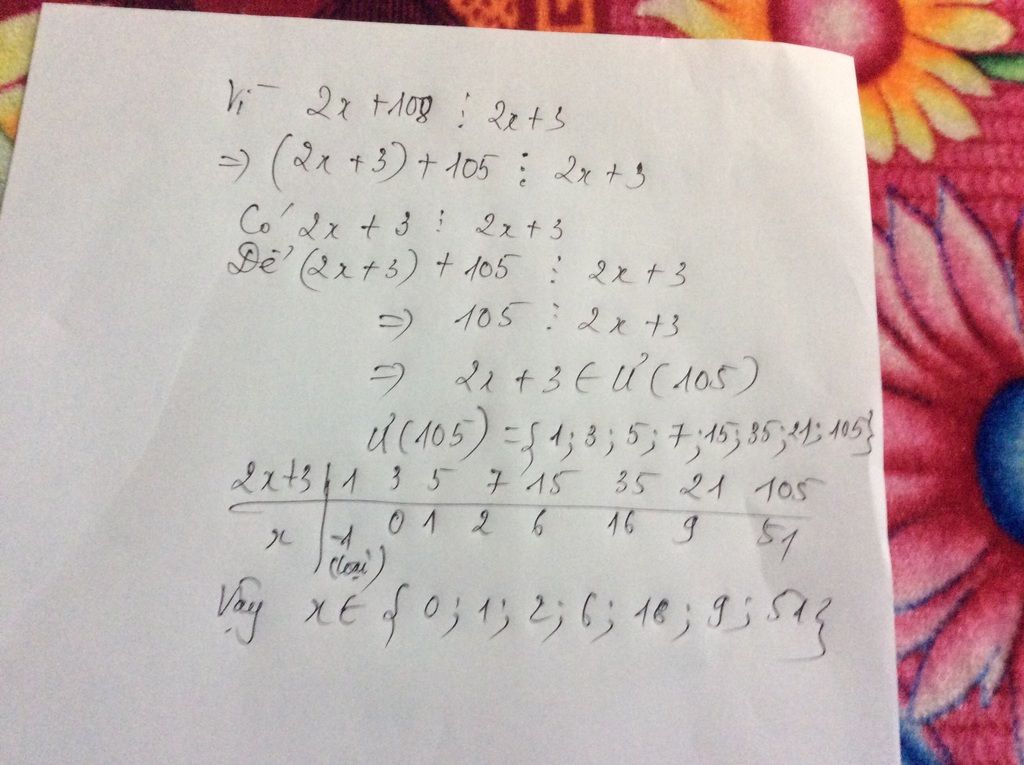 Vì 2x + 108 ⋮ 2x + 3
⇒ (2x + 3) + 105 ⋮ 2x + 3
Có 2x + 3 ⋮ 2x + 3
Để (2x + 3) + 105 ⋮ 2x + 3
⇒ 105 ⋮ 2x + 3
⇒ 2x + 3 ∈ Ư(105)
Ư(105) = {1; 3; 5; 7; 15; 35; 21; 105}
2x+3 | 1 3 5 7 15 35 21 105
x | -1 0 1 2 6 16 9 51
(loại)
Vậy x ∈ {0; 1; 2; 6; 16; 9; 51}